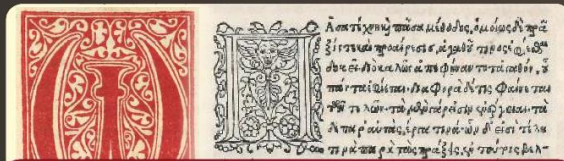 Πᾶσα τέχνη καὶ πᾶσα μέθοδος, ὁμοίως δὲ πρᾶ
ξίς τε καὶ προαίρεσις, ἀγαθοῦ τινος ἐφίεσθαι
δοκεῖ. διὸ καλῶς ἀπεφήναντο τἀγαθόν, οὗ
πάντα ἐφίεται. διαφορὰ δέ τις φαίνεται
τῶν τελῶν. τὰ μὲν γάρ εἰσιν ἐνέργειαι. τὰ
δὲ παρ' αὐτὰς, ἔργα τινά. ὧν δ' εἰσὶ τέλη
τινὰ παρὰ τὰς πράξεις, ἐν τούτοις βελ-